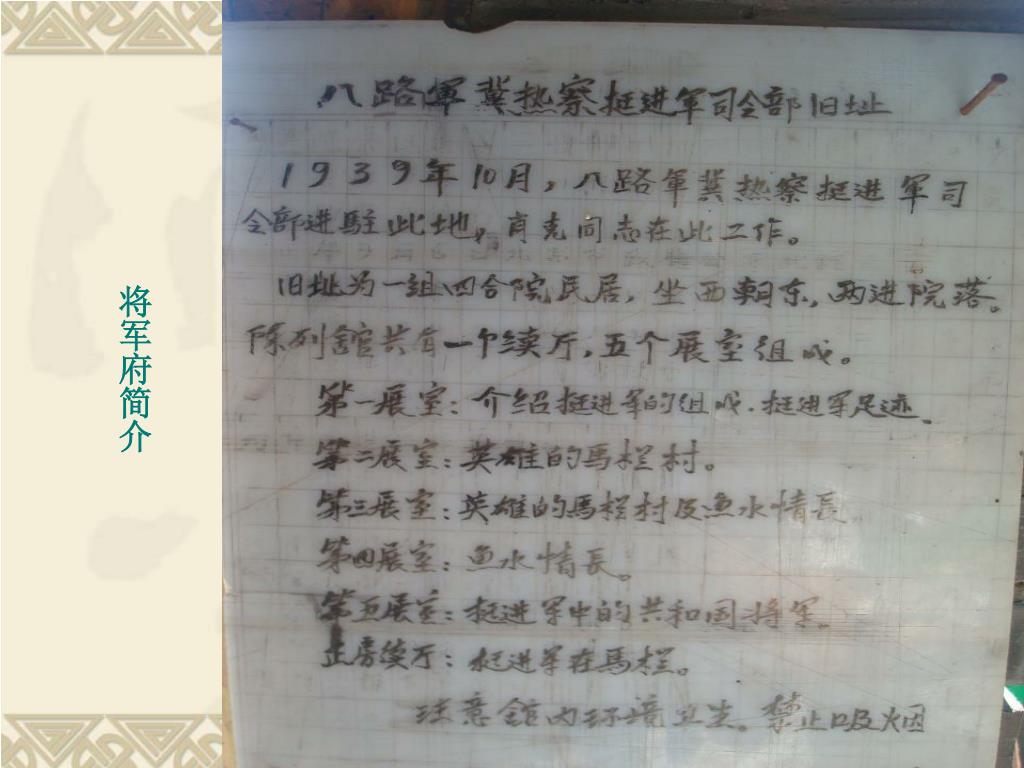 将军府简介
八路軍冀热察挺进军司令部旧址
1939年10月，八路軍冀热察挺进軍司
令部进駐此地，肖克同志在此工作。
旧址为一组四合院民居，坐西朝东，两进院落。
陈列舘共有一个续厅，五个展室组成。
第一展室：介绍挺进军的组成．挺进军足迹、
第二展室：英雄的馬栏村。
第三展室：英雄的馬栏村及魚水情長
第四展室：魚水情長。
第五展室：挺进军中的共和国将军。
正房续厅：挺进军在馬栏。
注意舘内环境卫生。禁止吸烟